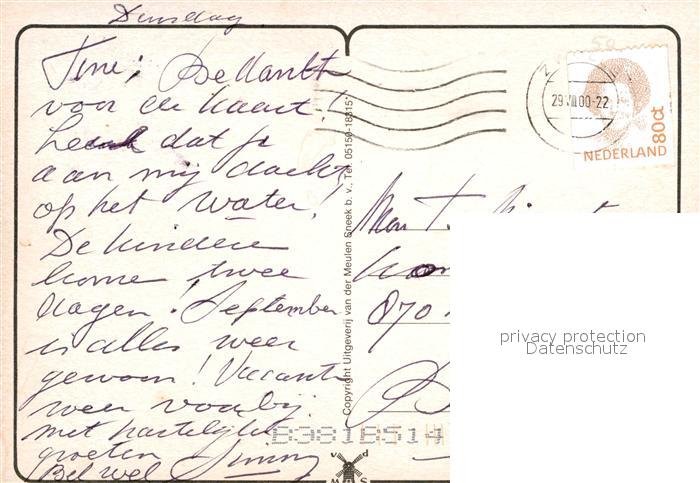 Dinsdag
Tine, Bedankt
voor de kaart!
Leuk dat je
aan mij dacht,
op het water!
De kinderen
kome twee
dagen! September
is alles weer
gewoon! Vacantie
weer voorbij.
met hartelijke
groeten
Bel wel
Copyright Uitgeverij van der Meulen Sneek b.v., Tel. 05150-18315
29 VII 00-22
80ct
NEDERLAND
870
privacy protection
Datenschutz
B381B514
v d
M S